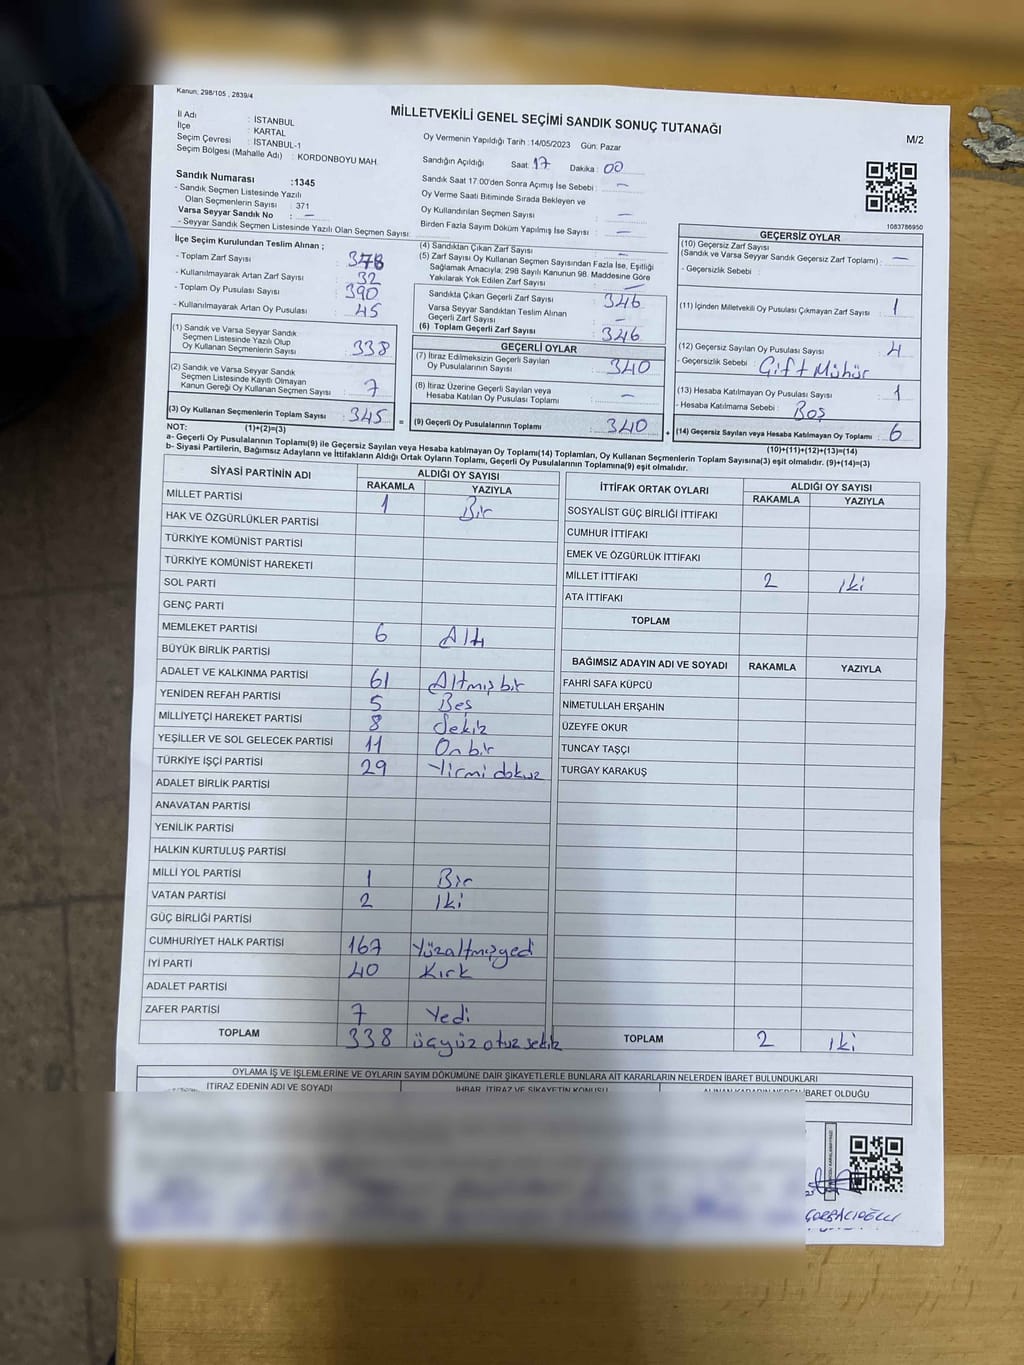 Kanun; 298/105 , 2839/4
MİLLETVEKİLİ GENEL SEÇİMİ SANDIK SONUÇ TUTANAĞI
M/2
İl Adı : İSTANBUL
İlçe : KARTAL
Seçim Çevresi : İSTANBUL-1
Seçim Bölgesi (Mahalle Adı) : KORDONBOYU MAH.
Sandık Numarası :1345
- Sandık Seçmen Listesinde Yazılı
Olan Seçmenlerin Sayısı : 371
Varsa Seyyar Sandık No : –
- Seyyar Sandık Seçmen Listesinde Yazılı Olan Seçmen Sayısı:
Oy Vermenin Yapıldığı Tarih :14/05/2023 Gün: Pazar
Sandığın Açıldığı Saat: 17 Dakika : 00
Sandık Saat 17:00'den Sonra Açımış İse Sebebi : –
Oy Verme Saati Bitiminde Sırada Bekleyen ve
Oy Kullandırılan Seçmen Sayısı : –
Birden Fazla Sayım Döküm Yapılmış İse Sayısı : –
1083786950
İlçe Seçim Kurulundan Teslim Alınan ;
- Toplam Zarf Sayısı : 378
- Kullanılmayarak Artan Zarf Sayısı : 32
- Toplam Oy Pusulası Sayısı : 390
- Kullanılmayarak Artan Oy Pusulası : 45
(1) Sandık ve Varsa Seyyar Sandık
Seçmen Listesinde Yazılı Olup
Oy Kullanan Seçmenlerin Sayısı : 338
(2) Sandık ve Varsa Seyyar Sandık
Seçmen Listesinde Kayıtlı Olmayan
Kanun Gereği Oy Kullanan Seçmen Sayısı : 7
(3) Oy Kullanan Seçmenlerin Toplam Sayısı : 345 =
(4) Sandıktan Çıkan Zarf Sayısı : –
(5) Zarf Sayısı Oy Kullanan Seçmen Sayısından Fazla İse, Eşitliği
Sağlamak Amacıyla; 298 Sayılı Kanunun 98. Maddesine Göre
Yakılarak Yok Edilen Zarf Sayısı : –
Sandıkta Çıkan Geçerli Zarf Sayısı : 346
Varsa Seyyar Sandıktan Teslim Alınan
Geçerli Zarf Sayısı : –
(6) Toplam Geçerli Zarf Sayısı : 346
GEÇERLİ OYLAR
(7) İtiraz Edilmeksizin Geçerli Sayılan
Oy Pusulalarının Sayısı : 340
(8) İtiraz Üzerine Geçerli Sayılan veya
Hesaba Katılan Oy Pusulası Toplamı : –
(9) Geçerli Oy Pusulalarının Toplamı : 340 +
GEÇERSİZ OYLAR
(10) Geçersiz Zarf Sayısı
(Sandık ve Varsa Seyyar Sandık Geçersiz Zarf Toplamı) : –
- Geçersizlik Sebebi :
(11) İçinden Milletvekili Oy Pusulası Çıkmayan Zarf Sayısı : 1
(12) Geçersiz Sayılan Oy Pusulası Sayısı : 4
- Geçersizlik Sebebi : Çift Mühür
(13) Hesaba Katılmayan Oy Pusulası Sayısı : 1
- Hesaba Katılmama Sebebi : Boş
(14) Geçersiz Sayılan veya Hesaba Katılmayan Oy Toplamı : 6
NOT: (1)+(2)=(3)
(10)+(11)+(12)+(13)=(14)
a- Geçerli Oy Pusulalarının Toplamı(9) ile Geçersiz Sayılan veya Hesaba katılmayan Oy Toplamı(14) Toplamları, Oy Kullanan Seçmenlerin Toplam Sayısına(3) eşit olmalıdır. (9)+(14)=(3)
b- Siyasi Partilerin, Bağımsız Adayların ve İttifakların Aldığı Ortak Oyların Toplamı, Geçerli Oy Pusulalarının Toplamına(9) eşit olmalıdır.
SİYASİ PARTİNİN ADI ALDIĞI OY SAYISI
RAKAMLA YAZIYLA
MİLLET PARTİSİ 1 Bir
HAK VE ÖZGÜRLÜKLER PARTİSİ
TÜRKİYE KOMÜNİST PARTİSİ
TÜRKİYE KOMÜNİST HAREKETİ
SOL PARTİ
GENÇ PARTİ
MEMLEKET PARTİSİ 6 Altı
BÜYÜK BİRLİK PARTİSİ
ADALET VE KALKINMA PARTİSİ 61 Altmışbir
YENİDEN REFAH PARTİSİ 5 Beş
MİLLİYETÇİ HAREKET PARTİSİ 8 Sekiz
YEŞİLLER VE SOL GELECEK PARTİSİ 11 Onbir
TÜRKİYE İŞÇİ PARTİSİ 29 Yirmi dokuz
ADALET BİRLİK PARTİSİ
ANAVATAN PARTİSİ
YENİLİK PARTİSİ
HALKIN KURTULUŞ PARTİSİ
MİLLİ YOL PARTİSİ 1 Bir
VATAN PARTİSİ 2 İki
GÜÇ BİRLİĞİ PARTİSİ
CUMHURİYET HALK PARTİSİ 167 Yüzaltmışyedi
İYİ PARTİ 40 Kırk
ADALET PARTİSİ
ZAFER PARTİSİ 7 Yedi
TOPLAM 338 üçyüzotuzsekiz
İTTİFAK ORTAK OYLARI ALDIĞI OY SAYISI
RAKAMLA YAZIYLA
SOSYALİST GÜÇ BİRLİĞİ İTTİFAKI
CUMHUR İTTİFAKI
EMEK VE ÖZGÜRLÜK İTTİFAKI
MİLLET İTTİFAKI 2 iki
ATA İTTİFAKI
TOPLAM
BAĞIMSIZ ADAYIN ADI VE SOYADI RAKAMLA YAZIYLA
FAHRİ SAFA KÜPCÜ
NİMETULLAH ERŞAHİN
ÜZEYFE OKUR
TUNCAY TAŞÇI
TURGAY KARAKUŞ
TOPLAM 2 iki
OYLAMA İŞ VE İŞLEMLERİNE VE OYLARIN SAYIM DÖKÜMÜNE DAİR ŞİKAYETLERLE BUNLARA AİT KARARLARIN NELERDEN İBARET BULUNDUKLARI
İTİRAZ EDENİN ADI VE SOYADI İHBAR, İTİRAZ VE ŞİKAYETİN KONUSU ALINAN KARARIN NEDEN İBARET OLDUĞU